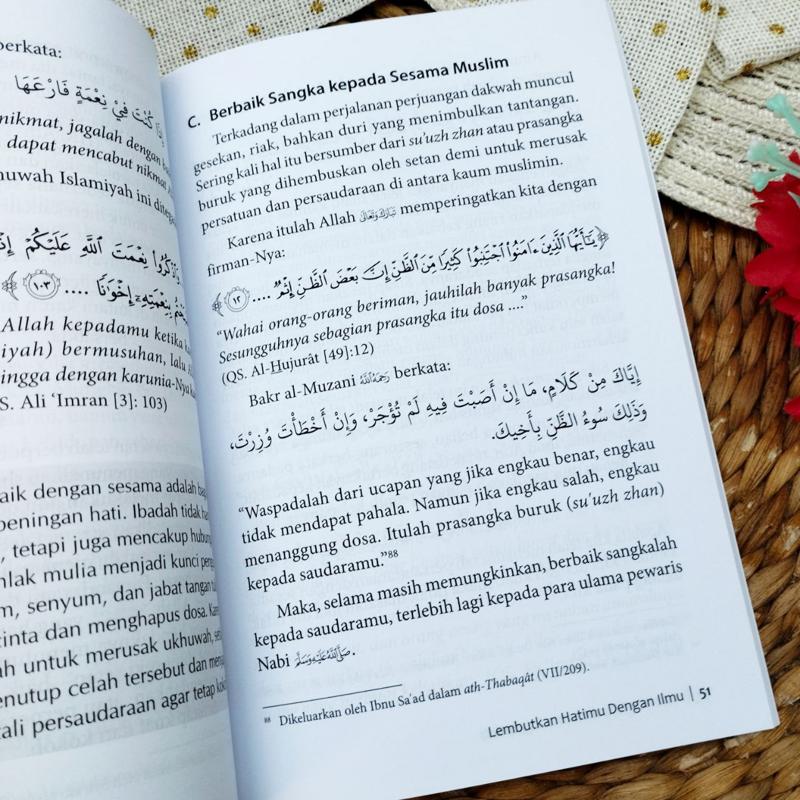 berkata:
كُنْتَ فِيْ نِعْمَةٍ فَارْعَهَا
nikmat, jagalah dengan
dapat mencabut nikmat
uwah Islamiyah ini
نِعْمَتَ ٱللَّهِ عَلَيْكُمْ
بِنِعْمَتِهِۦٓ إِخْوَٰنًا .... ﴿١٠٣﴾
Allah kepadamu ketika
iyah) bermusuhan, lalu
ingga dengan karunia-Nya
S. Ali ‘Imran [3]: 103)
aik dengan sesama adalah
beningan hati. Ibadah tidak
, tetapi juga mencakup
hlak mulia menjadi kunci
m, senyum, dan jabat tangan
cinta dan menghapus dosa.
ah untuk merusak ukhuwah,
enutup celah tersebut dan
tali persaudaraan agar tetap
C. Berbaik Sangka kepada Sesama Muslim
Terkadang dalam perjalanan perjuangan dakwah muncul
gesekan, riak, bahkan duri yang menimbulkan tantangan.
Sering kali hal itu bersumber dari su'uzh zhan atau prasangka
buruk yang dihembuskan oleh setan demi untuk merusak
persatuan dan persaudaraan di antara kaum muslimin.
Karena itulah Allah تَبَارَكَ وَتَعَالَى memperingatkan kita dengan
firman-Nya:
﴿يَٰٓأَيُّهَا ٱلَّذِينَ ءَامَنُوا۟ ٱجْتَنِبُوا۟ كَثِيرًا مِّنَ ٱلظَّنِّ إِنَّ بَعْضَ ٱلظَّنِّ إِثْمٌ .... ﴿١٢﴾
“Wahai orang-orang beriman, jauhilah banyak prasangka!
Sesungguhnya sebagian prasangka itu dosa ....”
(QS. Al-Hujurât [49]:12)
Bakr al-Muzani رَحِمَهُ اللهُ berkata:
إِيَّاكَ مِنْ كَلَامٍ، مَا إِنْ أَصَبْتَ فِيهِ لَمْ تُؤْجَرْ، وَإِنْ أَخْطَأْتَ وُزِرْتَ،
وَذَلِكَ سُوءُ الظَّنِّ بِأَخِيكَ.
“Waspadalah dari ucapan yang jika engkau benar, engkau
tidak mendapat pahala. Namun jika engkau salah, engkau
menanggung dosa. Itulah prasangka buruk (su'uzh zhan)
kepada saudaramu.”88
Maka, selama masih memungkinkan, berbaik sangkalah
kepada saudaramu, terlebih lagi kepada para ulama pewaris
Nabi صَلَّى اللهُ عَلَيْهِ وَسَلَّمَ.
88 Dikeluarkan oleh Ibnu Sa'ad dalam ath-Thabaqât (VII/209).
Lembutkan Hatimu Dengan Ilmu | 51